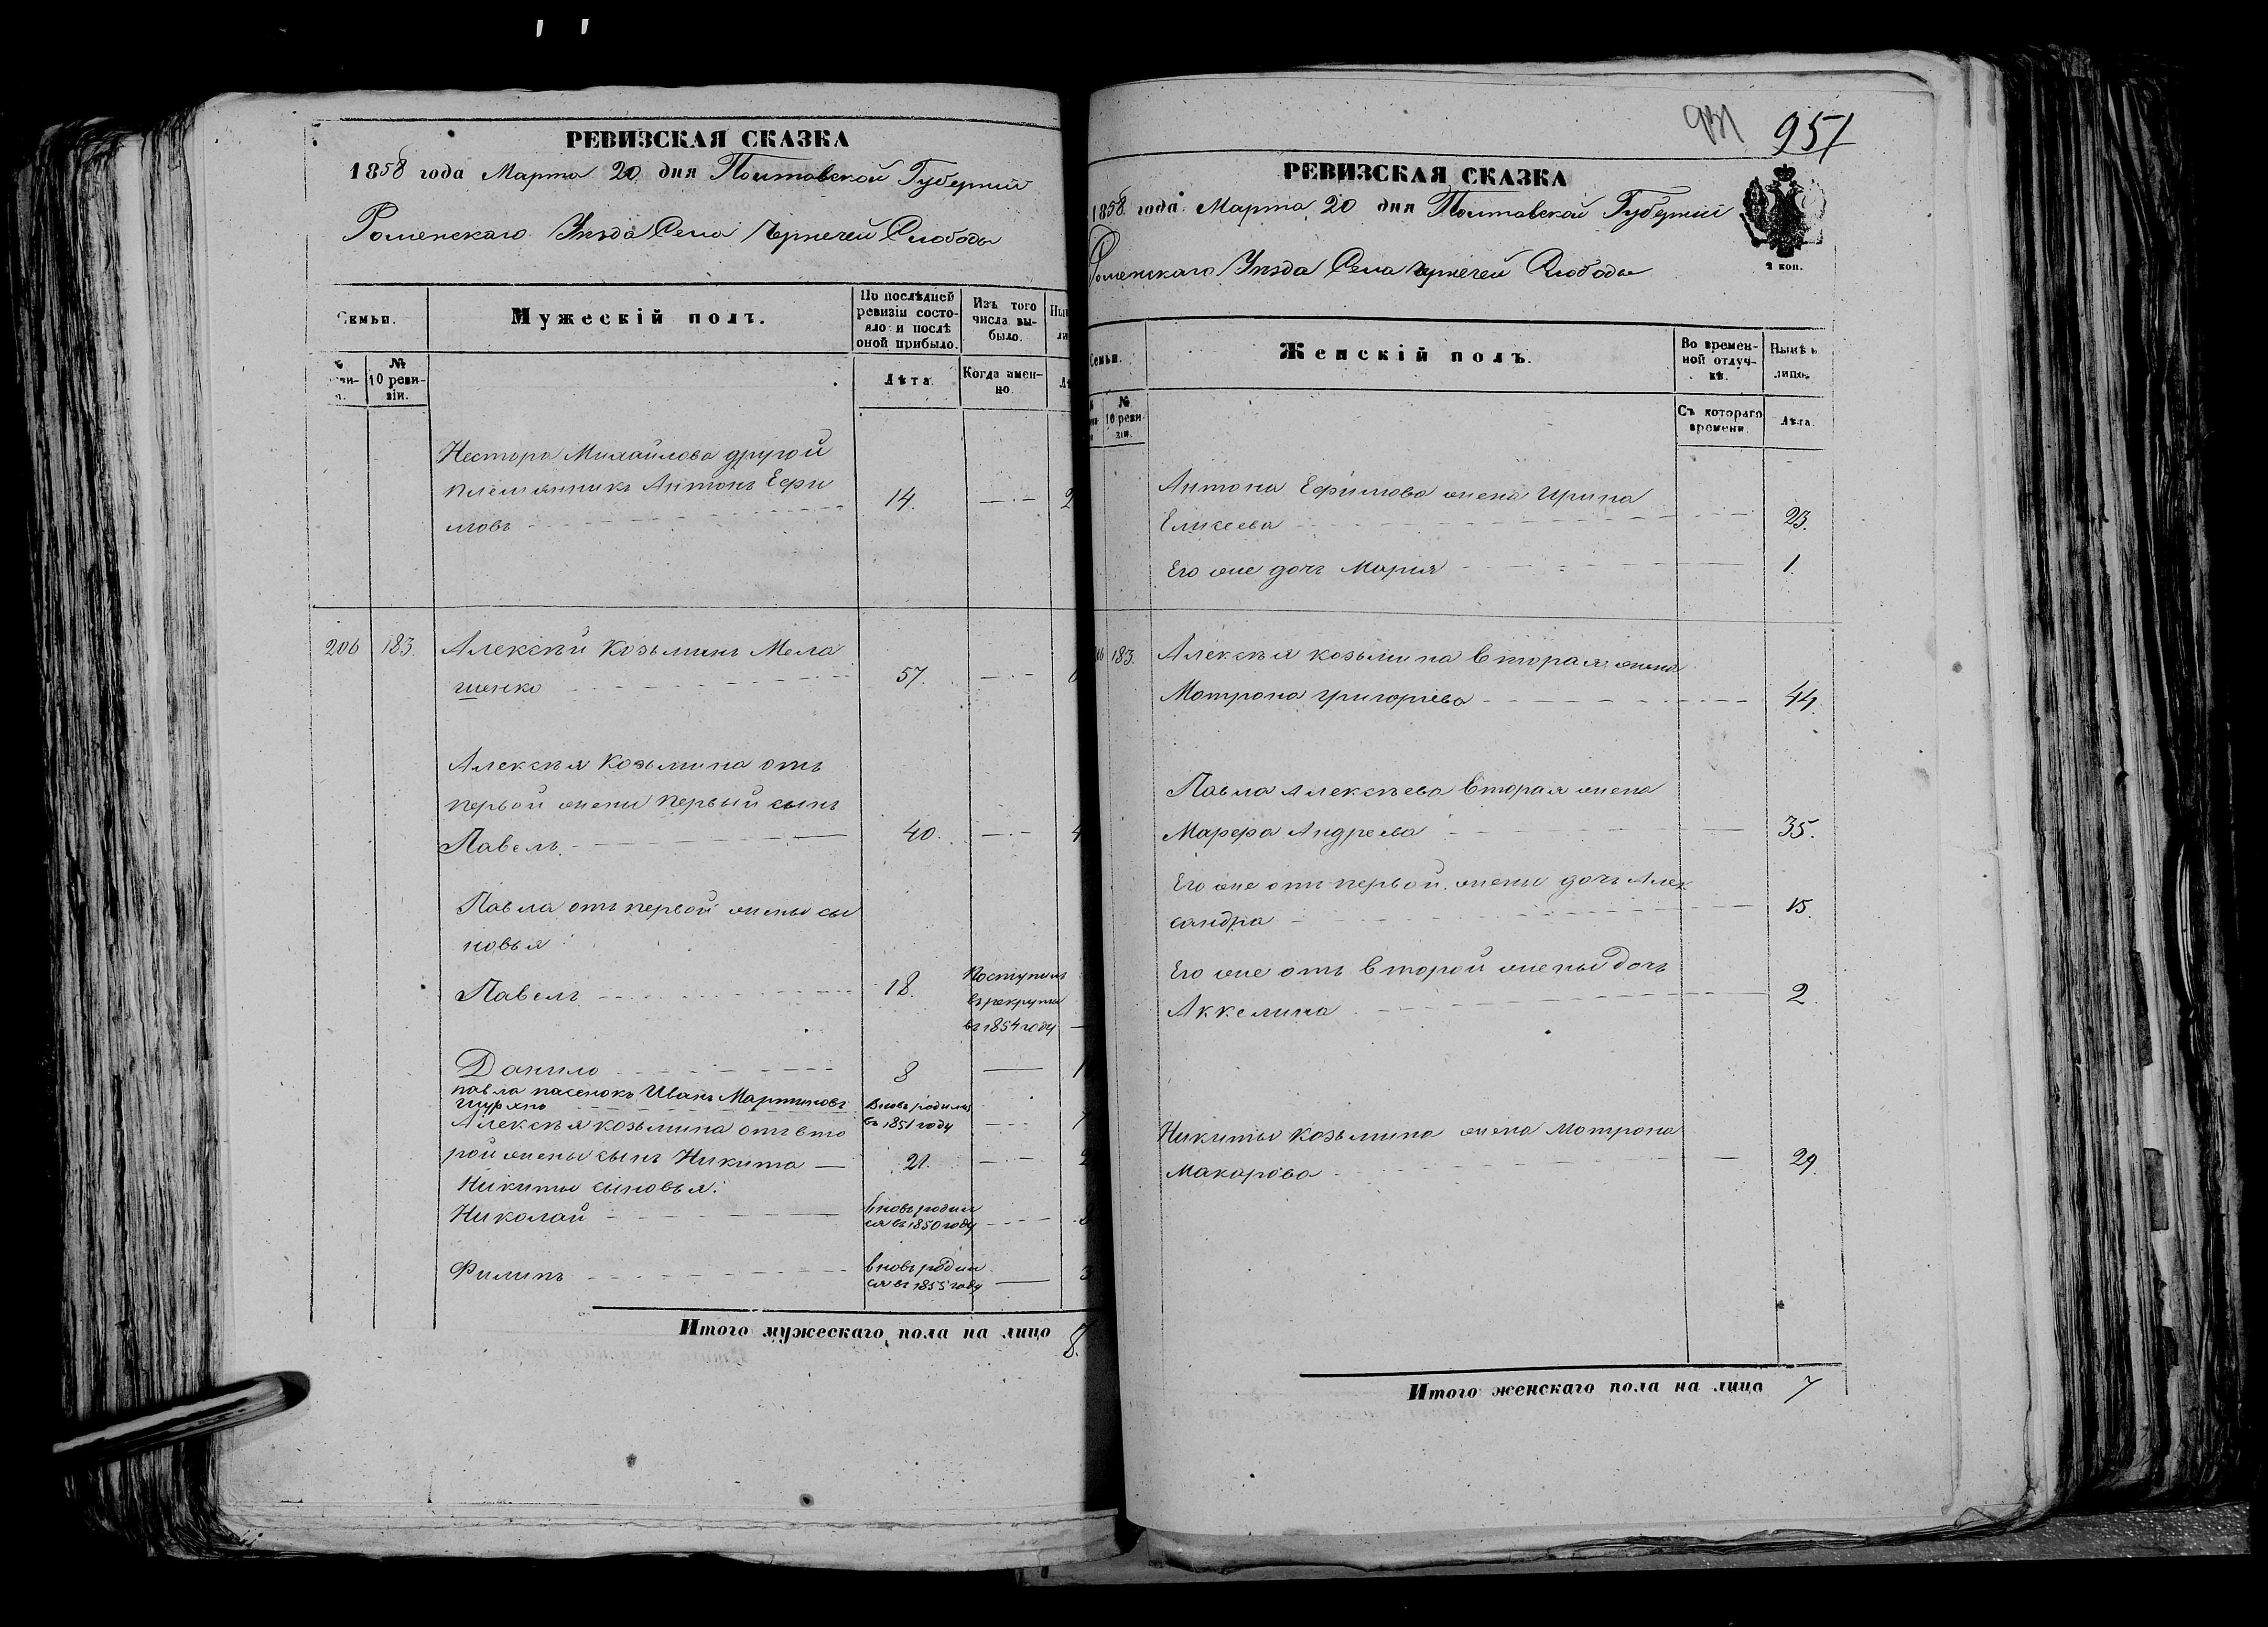 РЕВИЗСКАЯ СКАЗКА
1858 года Марта 20 дня Полтавской Губернии
Роменскаго Уезда Села Чернечей Слободы
Семьи.
Мужескій полъ.
По послѣдней ревизіи состо-
яло и послѣ
оной прибыло.
Изъ того
числа вы-
было.
№
10 реви-
зіи.
Лѣта.
Когда имен-
но.
Нестора Михайлова другой
племянникъ Антонъ Ефи
мовъ 14.
206 183. Алексѣй Козьминъ Мела
шенко 57.
Алексѣя Козьмина отъ
первой жены первый сынъ
Павелъ 40.
Павла отъ первой жены сы
новья:
Павелъ 18. Поступилъ
въ рекруты
въ 1854 году
Данило 8
Павла пасенокъ Иванъ Мартиновъ
вновь родился
въ 1851 году
Алексѣя Козьмина отъ вто
рой жены сынъ Никита 21.
Никиты сыновья:
Николай вновь родил
ся въ 1850 году
Филипъ вновь родил
ся въ 1855 году 3
Итого мужескаго пола на лицо 8.
931 951
РЕВИЗСКАЯ СКАЗКА
1858 года Марта 20 дня Полтавской Губернии
Роменскаго Уезда Села Чернечей Слободы
2 коп.
Семьи.
Женскій полъ.
Во времен-
ной отлуч-
кѣ.
Нынѣ на
лицо.
№
10 реви-
зіи.
Съ котораго
времени.
Лѣта.
Антона Ефимова жена Ирина
Елисеева 23.
Его же дочь Мария 1.
183. Алексѣя Козьмина вторая жена
Мотрона Григорiева 44.
Павла Алексѣева вторая жена
Марфа Андреева 35.
Его же отъ первой жены дочь Алек
сандра 15.
Его же отъ второй жены дочь
Аккелина 2.
Никиты Козьмина жена Мотрона
Макарова 29.
Итого женскаго пола на лицо 7